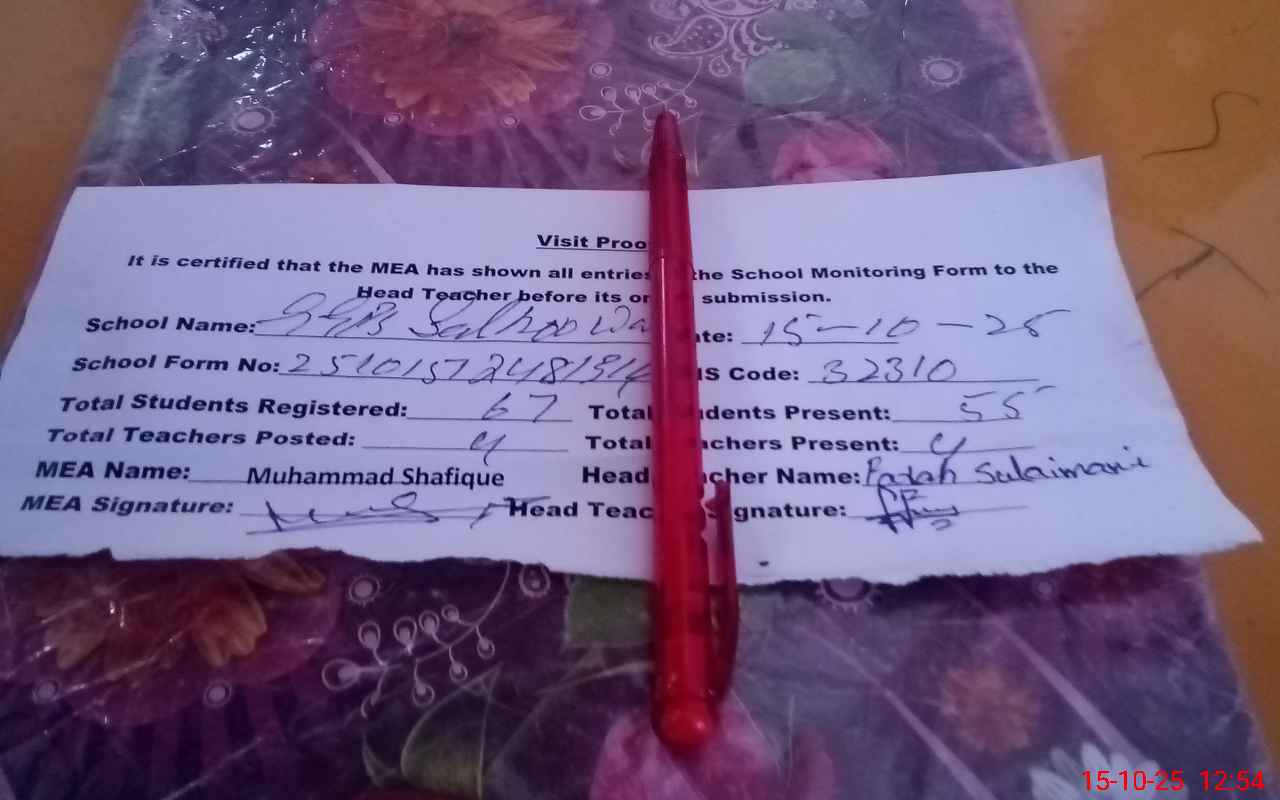 Visit Proo
It is certified that the MEA has shown all entries the School Monitoring Form to the
Head Teacher before its submission.
School Name: te: 15-10-25
School Form No: 2510157248191 IS Code: 32310
Total Students Registered: 67 Total dents Present: 55
Total Teachers Posted: 4 Total achers Present: 4
MEA Name: Muhammad Shafique Head cher Name: Farah Sulaimani
MEA Signature: Head Teac Signature:
15-10-25 12:54